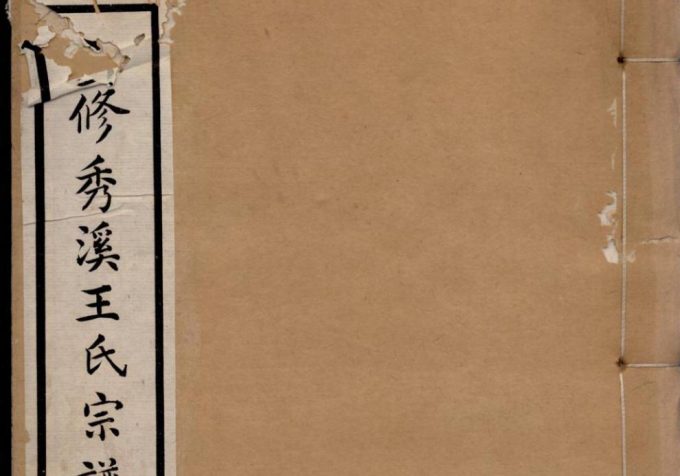 修秀溪王氏宗譜